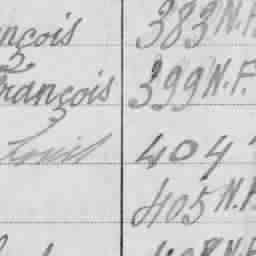 nçois 383 N.F.
rançois 399 N.F.
Louis 404
405 N.F.